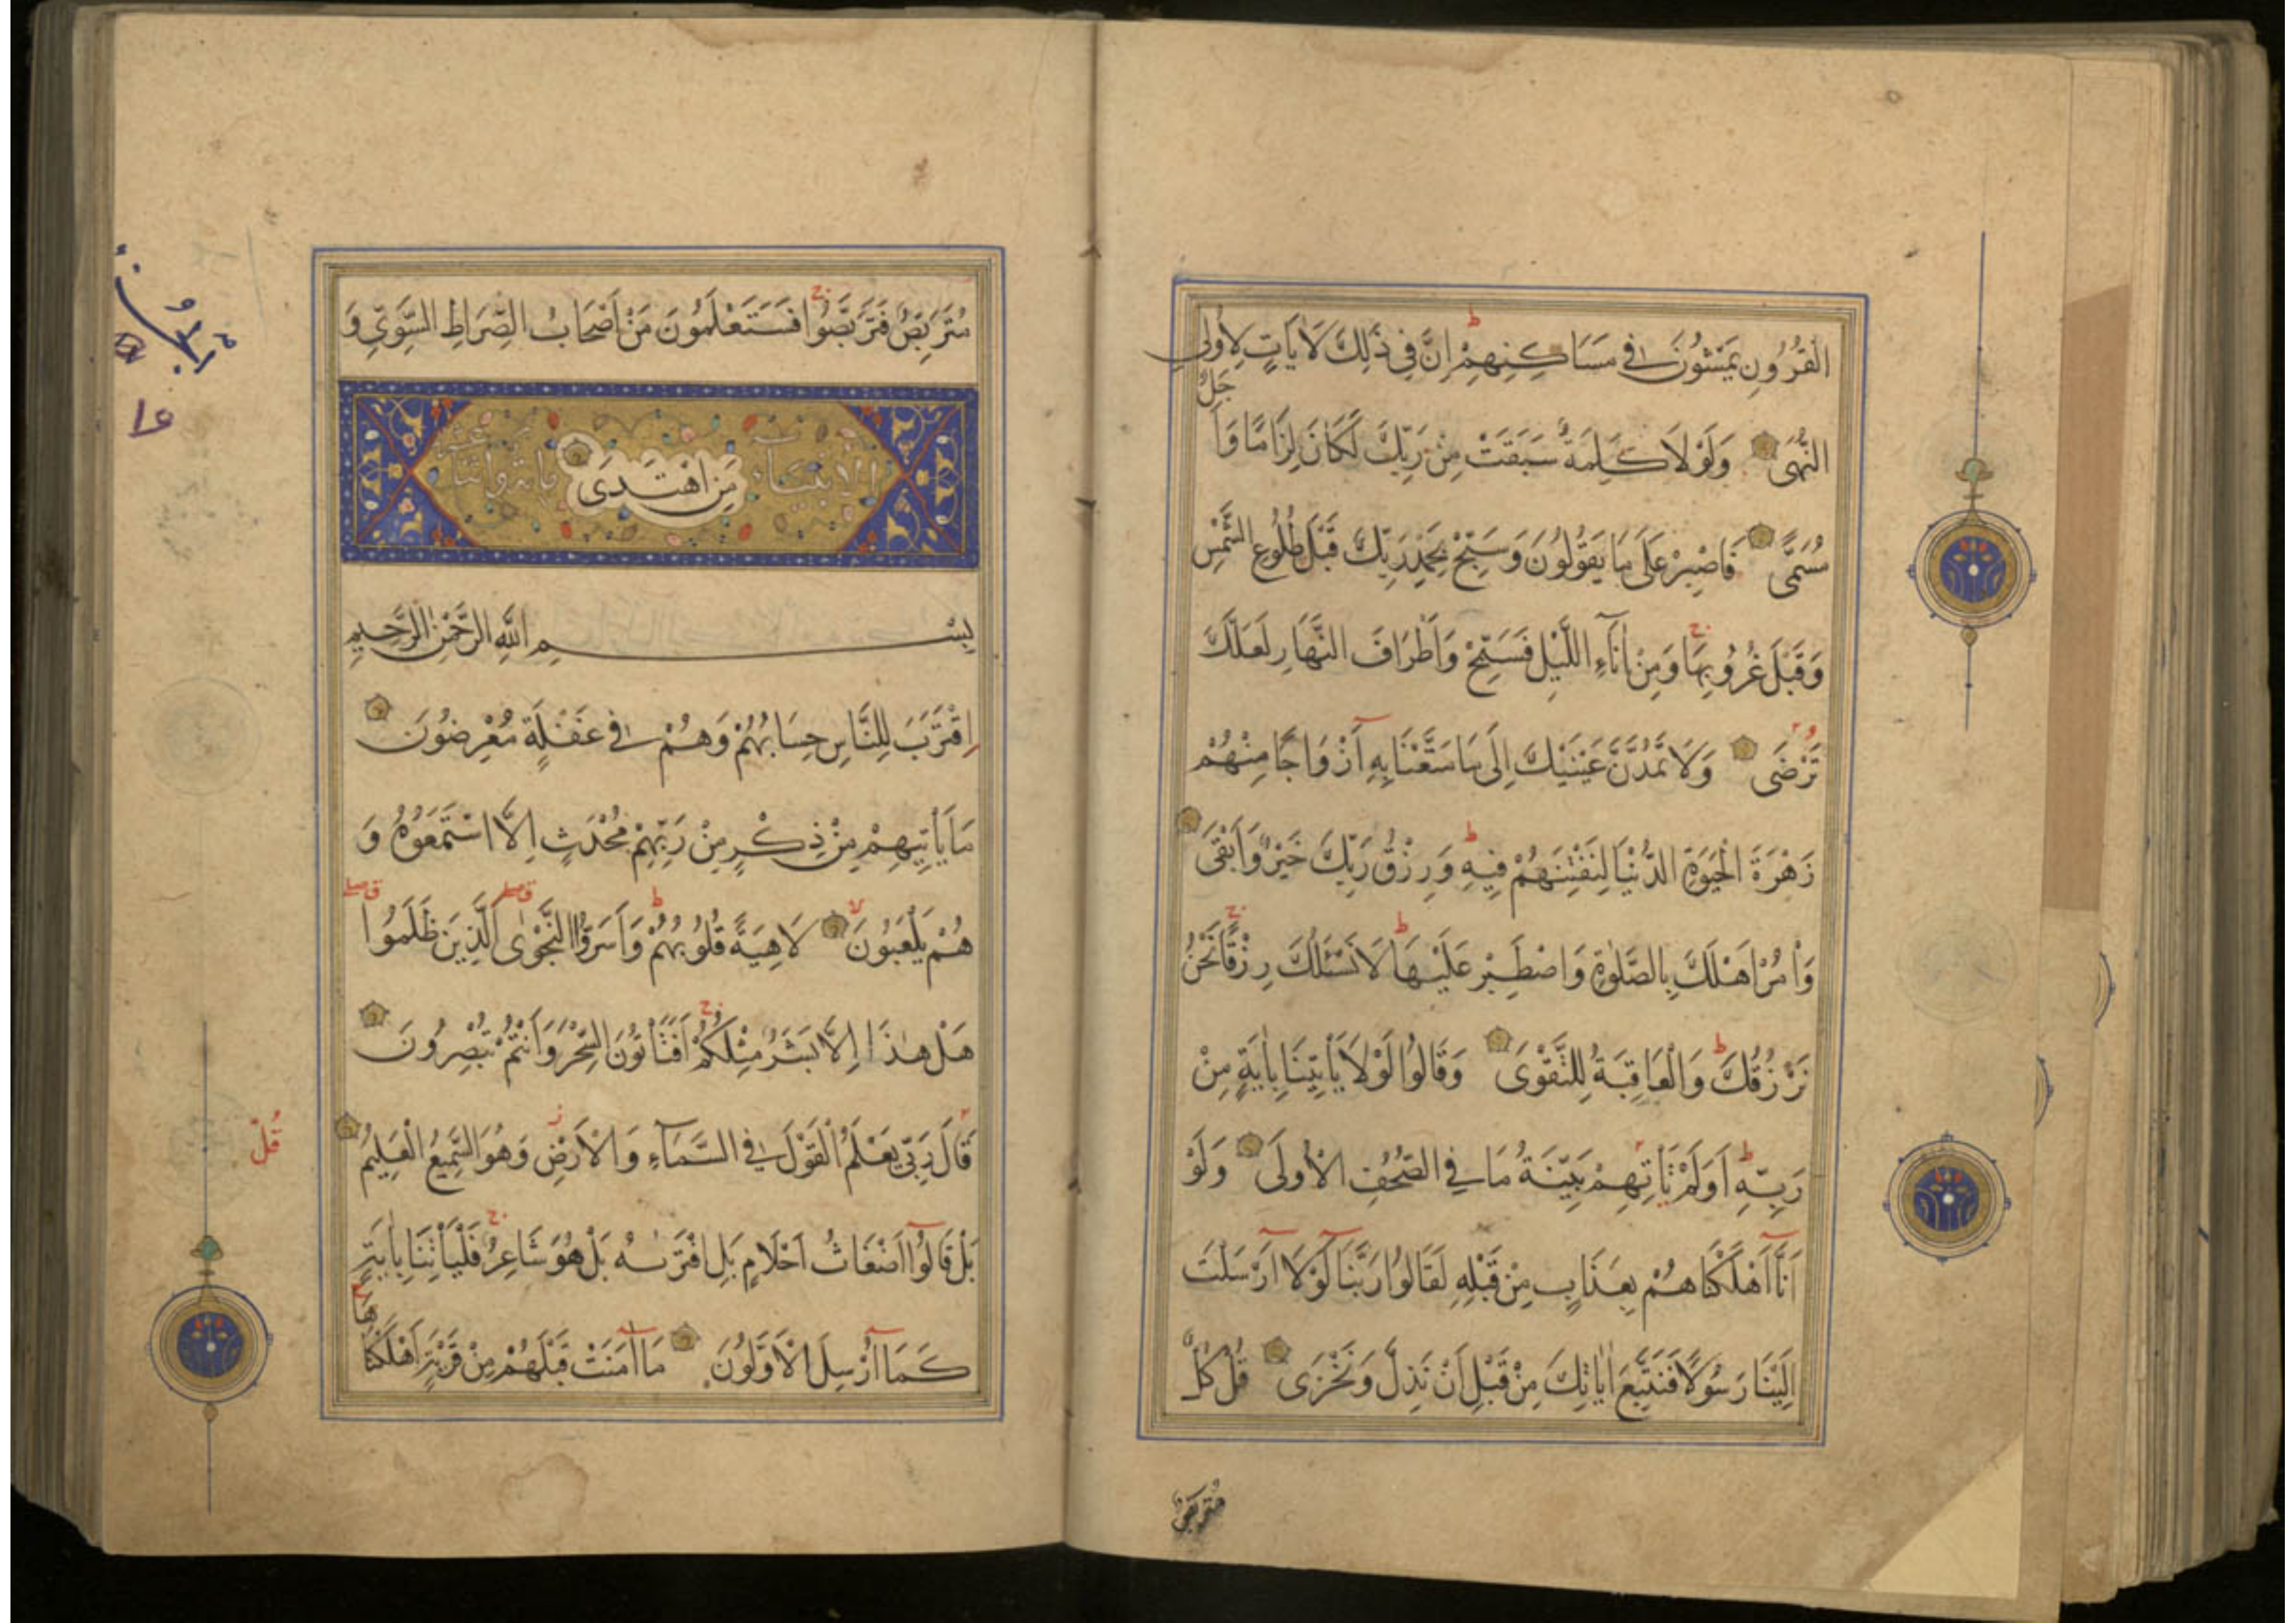 الْقُرُونِ يَمْشُونَ فِي مَسَاكِنِهِمْ اِنَّ فِي ذٰلِكَ لَاٰيَاتٍ لِاُولِي
النُّهٰى وَلَوْلَا كَلِمَةٌ سَبَقَتْ مِنْ رَبِّكَ لَكَانَ لِزَامًا وَاَ
جَلٌ
مُسَمًّى فَاصْبِرْ عَلٰى مَا يَقُولُونَ وَسَبِّحْ بِحَمْدِ رَبِّكَ قَبْلَ طُلُوعِ الشَّمْسِ
وَقَبْلَ غُرُوبِهَا وَمِنْ اٰنَآءِ اللَّيْلِ فَسَبِّحْ وَاَطْرَافَ النَّهَارِ لَعَلَّكَ
تَرْضٰى وَلَا تَمُدَّنَّ عَيْنَيْكَ اِلٰى مَا مَتَّعْنَا بِهٖ اَزْوَاجًا مِنْهُمْ
زَهْرَةَ الْحَيٰوةِ الدُّنْيَا لِنَفْتِنَهُمْ فِيهِ وَرِزْقُ رَبِّكَ خَيْرٌ وَاَبْقٰى
وَاْمُرْ اَهْلَكَ بِالصَّلٰوةِ وَاصْطَبِرْ عَلَيْهَا لَا نَسْئَلُكَ رِزْقًا نَحْنُ
نَرْزُقُكَ وَالْعَاقِبَةُ لِلتَّقْوٰى وَقَالُوا لَوْلَا يَاْتِينَا بِاٰيَةٍ مِنْ
رَبِّهٖ اَوَلَمْ تَاْتِهِمْ بَيِّنَةُ مَا فِي الصُّحُفِ الْاُولٰى وَلَوْ
اَنَّا اَهْلَكْنَاهُمْ بِعَذَابٍ مِنْ قَبْلِهٖ لَقَالُوا رَبَّنَا لَوْلَا اَرْسَلْتَ
اِلَيْنَا رَسُولًا فَنَتَّبِعَ اٰيَاتِكَ مِنْ قَبْلِ اَنْ نَذِلَّ وَنَخْزٰى قُلْ كُلٌّ
مُتَرَبِّصٌ
مُتَرَبِّصٌ فَتَرَبَّصُوا فَسَتَعْلَمُونَ مَنْ اَصْحَابُ الصِّرَاطِ السَّوِيِّ وَ
مَنِ اهْتَدٰى
الانبياء
بِسْمِ اللّٰهِ الرَّحْمٰنِ الرَّحِيمِ
اِقْتَرَبَ لِلنَّاسِ حِسَابُهُمْ وَهُمْ فِي غَفْلَةٍ مُعْرِضُونَ
مَا يَاْتِيهِمْ مِنْ ذِكْرٍ مِنْ رَبِّهِمْ مُحْدَثٍ اِلَّا اسْتَمَعُوهُ وَ
هُمْ يَلْعَبُونَ لَاهِيَةً قُلُوبُهُمْ وَاَسَرُّوا النَّجْوٰى الَّذِينَ ظَلَمُوا
هَلْ هٰذَا اِلَّا بَشَرٌ مِثْلُكُمْ اَفَتَاْتُونَ السِّحْرَ وَاَنْتُمْ تُبْصِرُونَ
قَالَ رَبِّي يَعْلَمُ الْقَوْلَ فِي السَّمَآءِ وَالْاَرْضِ وَهُوَ السَّمِيعُ الْعَلِيمُ
قُلْ
بَلْ قَالُوا اَضْغَاثُ اَحْلَامٍ بَلِ افْتَرٰيهُ بَلْ هُوَ شَاعِرٌ فَلْيَاْتِنَا بِاٰيَةٍ
كَمَا اُرْسِلَ الْاَوَّلُونَ مَا اٰمَنَتْ قَبْلَهُمْ مِنْ قَرْيَةٍ اَهْلَكْنَا
هَا